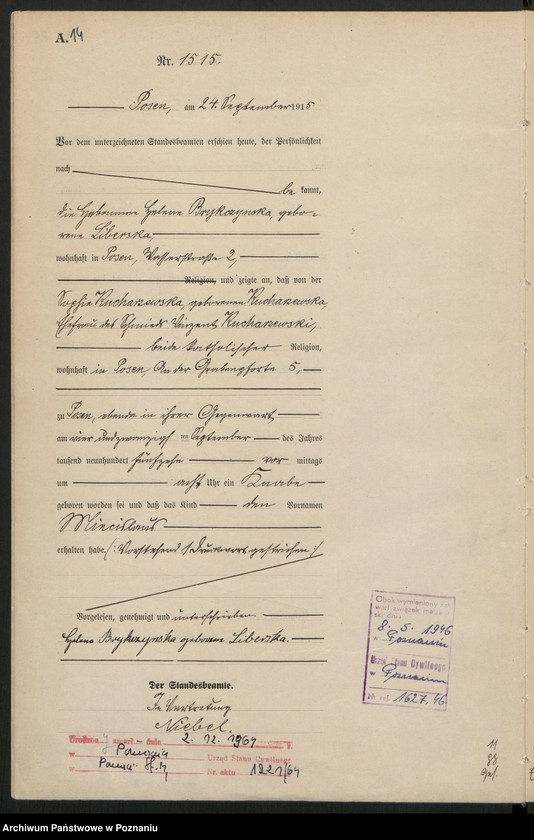 A. 14
Nr. 1515.
Posen, am 24. September 1915
Vor dem unterzeichneten Standesbeamten erschien heute, der Persönlichkeit
nach
be kannt,
die Hebamme Helene Brykczynska, gebo-
rene Liberska,
wohnhaft in Posen, Wasserstraße 2,
Religion, und zeigte an, daß von der
Sophie Kucharzewska, geborenen Kucharzewska,
Ehefrau des Schmieds Vinzent Kucharzewski,
beide katholischer Religion,
wohnhaft in Posen, An der Grabenpforte 5,
zu Posen, ebenda in ihrer Gegenwart,
am vier und zwanzigsten September des Jahres
tausend neunhundert fünfzehn vor mittags
um acht Uhr ein Knabe
geboren worden sei und daß das Kind den Vornamen
Miecislaus
erhalten habe. (: Vorstehend 1 Druckwort gestrichen :)
Vorgelesen, genehmigt und unterschrieben.
Helene Brykczynska geborene Liberska.
Der Standesbeamte.
In Vertretung
Niebel.
Obok wymieniony
warł związek
dnia
8. 5. 1946
w Poznaniu
Urząd Stanu Cywilnego
w Poznaniu
Nr akt 1627/46
zmarł - dnia 2. 12. 1964 r.
w Poznaniu Urząd Stanu Cywilnego
w Poznań Nr. aktu 1221/64
11
Archiwum Państwowe w Poznaniu